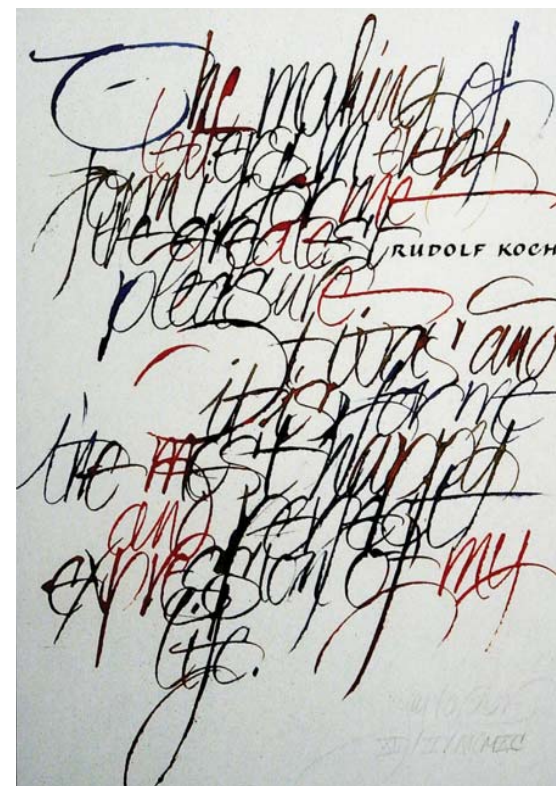 The making of
letters in every
form is for me
the greatest
RUDOLF KOCH
pleasure.
It was and
it is for me
the most happy
and perfect
expression of my
life.